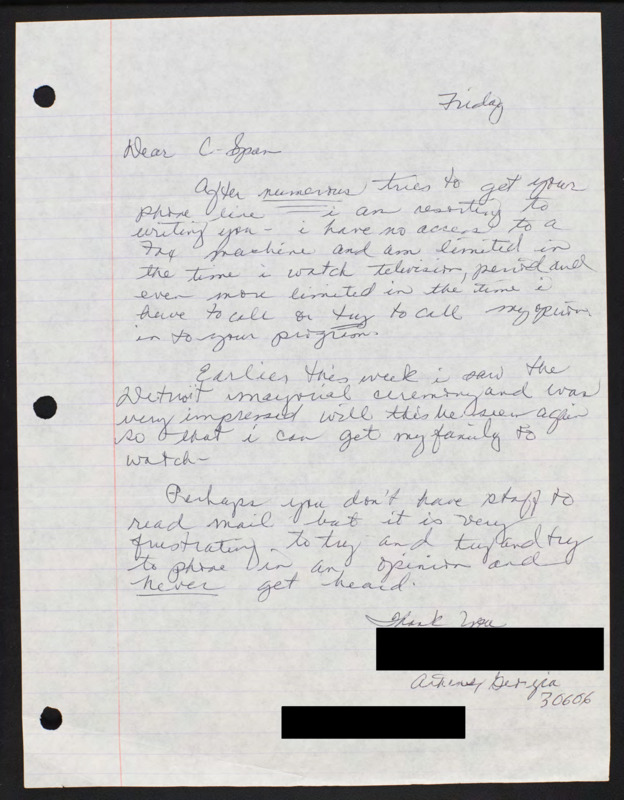 Friday
Dear C-Span
After numerous tries to get your
phone line i am resorting to
writing you - i have no access to a
Fax machine and am limited in
the time i watch television, period and
even more limited in the time i
have to call or try to call my opinion
in to your program.
Earlier this week i saw the
Detroit mayorial ceremony and was
very impressed will this be seen again
so that i can get my family to
watch-
Perhaps you don't have staff to
read mail but it is very
frustrating to try and try and try
to phone in an opinion and
never get heard.
Thank You
Athens, Georgia
30606